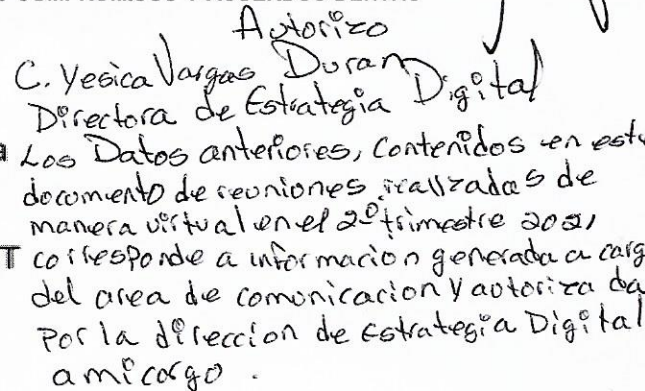 Autorizo
C. Yesica Vargas Duran
Directora de Estrategia Digital
Los Datos anteriores, contenidos en este
documento de reuniones realizadas de
manera virtual en el 2º trimestre 2021
T corresponde a informacion generada a carg
del area de comunicacion y autorizada
Por la direccion de Estrategia Digital
a mi cargo.